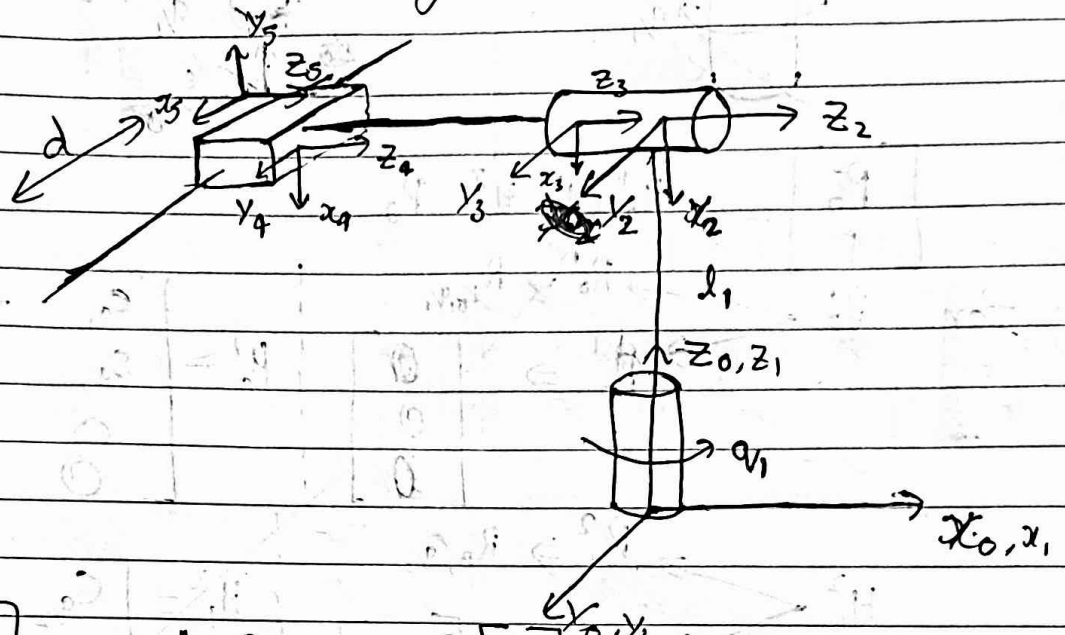 Y5
Z5
x5
d
Z4
Y4
x4
Z3
Z2
x3
Y3
Y2
x2
l1
Z0, Z1
q1
X0, x1
Y0, Y1